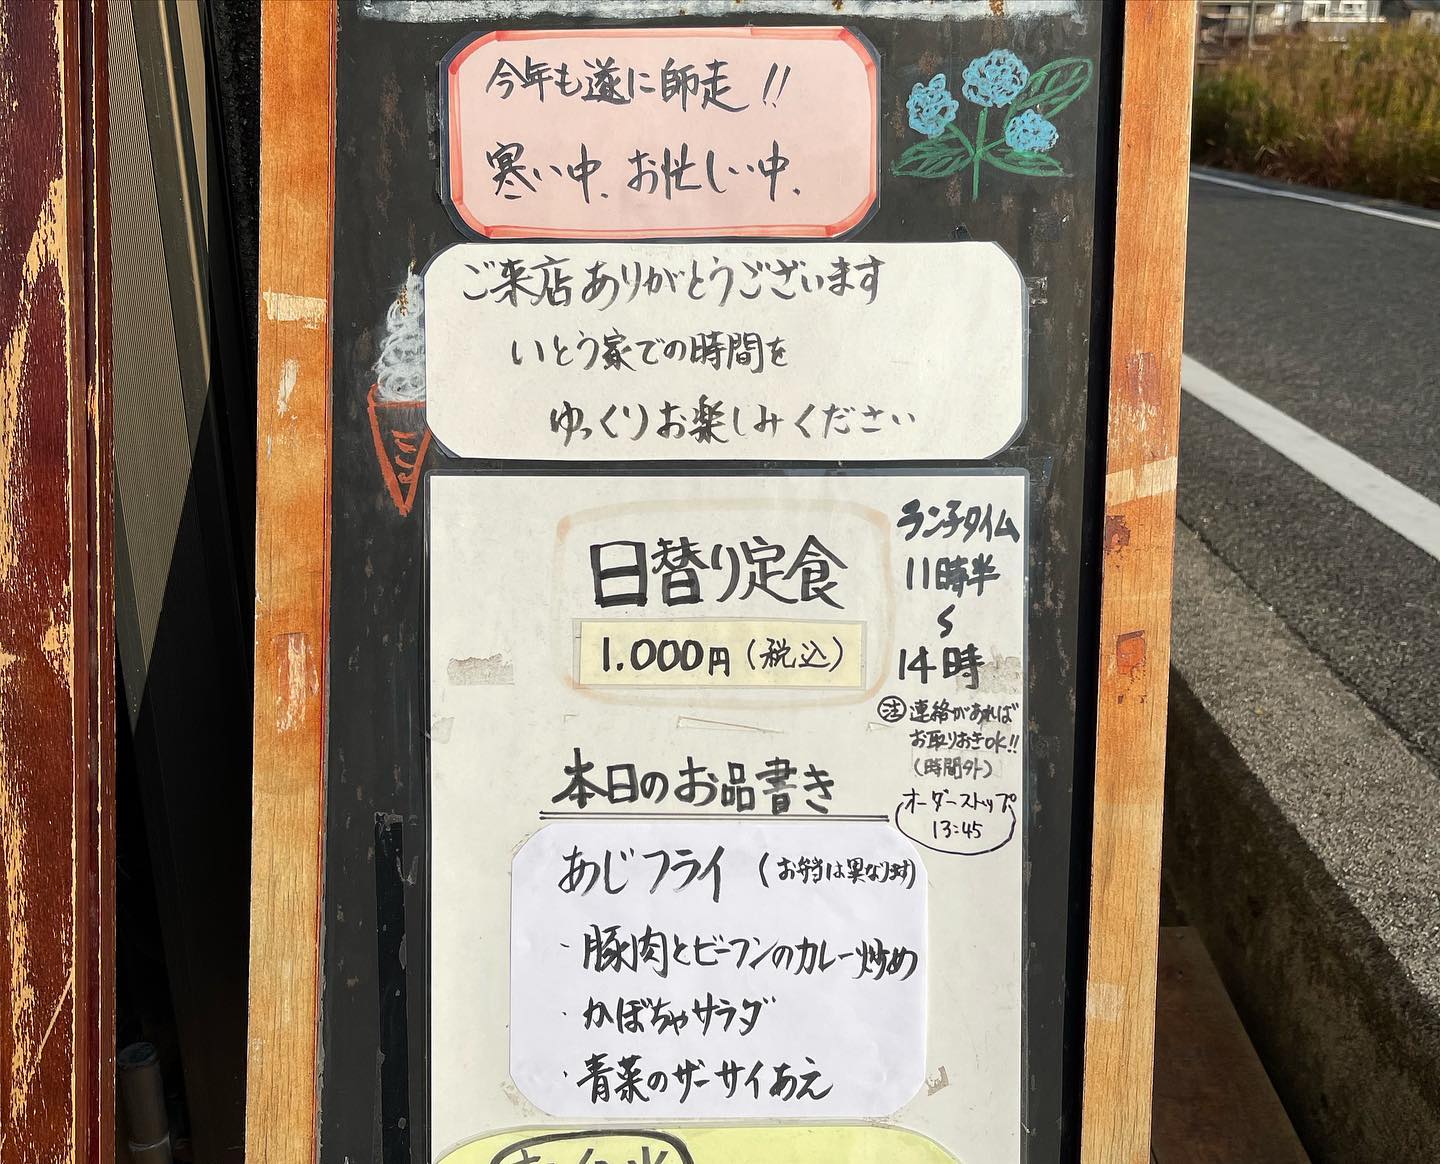 今年も遂に師走!!
寒い中、お忙しい中、
ご来店ありがとうございます
いとう家での時間を
ゆっくりお楽しみください
日替り定食
1.000円(税込)
ランチタイム
11時半
〜
14時
注 連絡があれば
お取りおきOK!!
(時間外)
オーダーストップ
13:45
本日のお品書き
あじフライ (お弁当は異なります)
・豚肉とビーフンのカレー炒め
・かぼちゃサラダ
・青菜のザーサイあえ